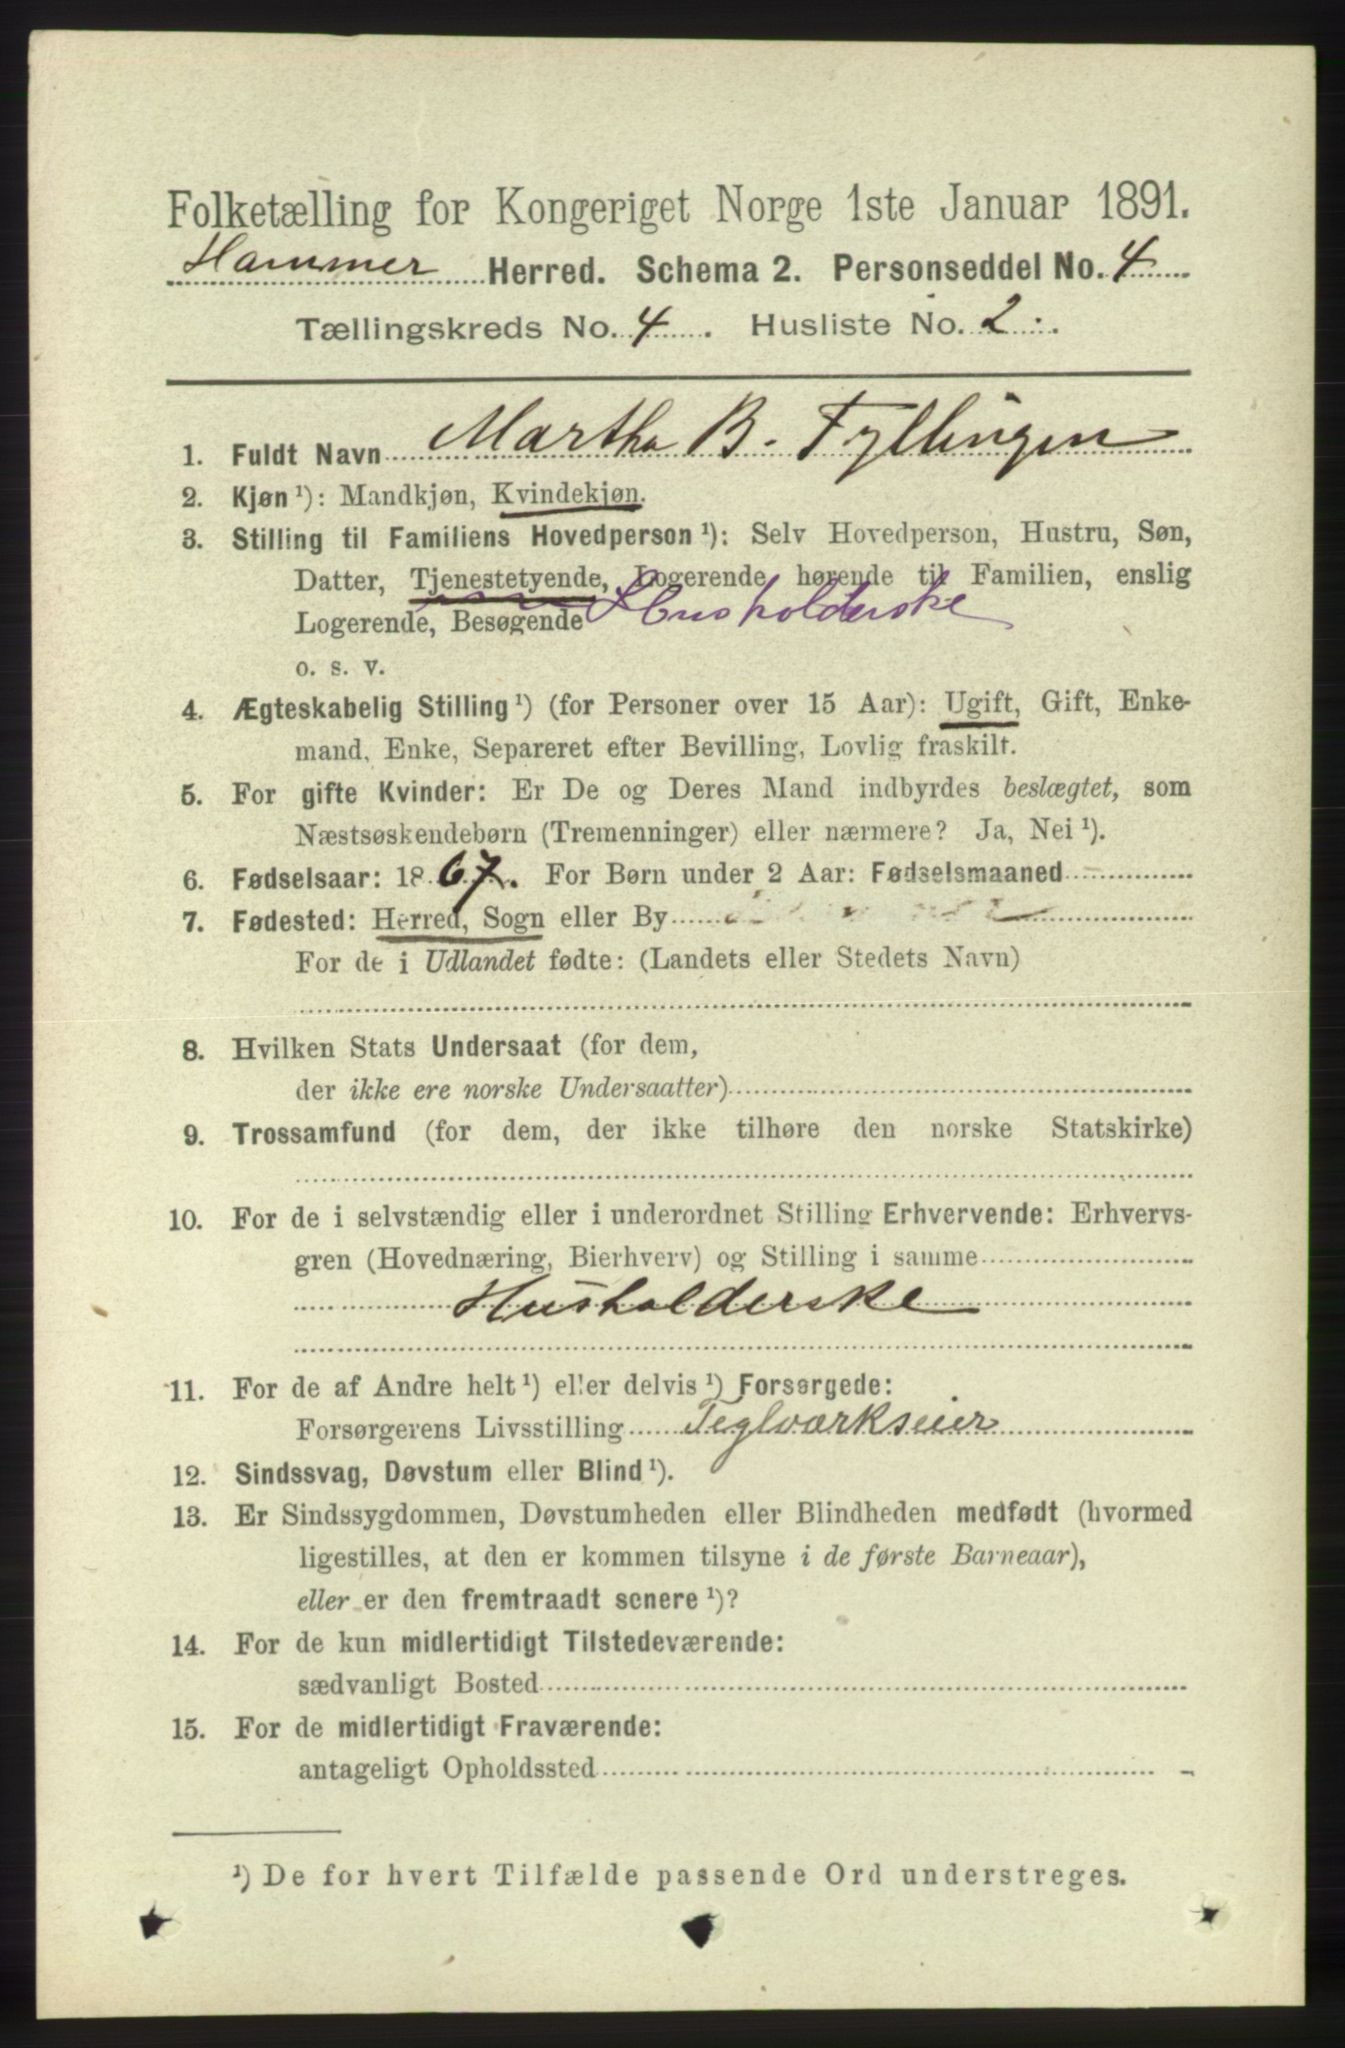 Folketælling for Kongeriget Norge 1ste Januar 1891.
Hammer Herred. Schema 2. Personseddel No. 4
Tællingskreds No. 4. Husliste No. 2.
1. Fuldt Navn Martha B. Fyllingen
2. Kjøn ¹): Mandkjøn, Kvindekjøn.
3. Stilling til Familiens Hovedperson ¹): Selv Hovedperson, Hustru, Søn,
Datter, Tjenestetyende, Logerende hørende til Familien, enslig
Logerende, Besøgende Husholderske
o. s. v.
4. Ægteskabelig Stilling ¹) (for Personer over 15 Aar): Ugift, Gift, Enke-
mand, Enke, Separeret efter Bevilling, Lovlig fraskilt.
5. For gifte Kvinder: Er De og Deres Mand indbyrdes beslægtet, som
Næstsøskendebørn (Tremenninger) eller nærmere? Ja, Nei ¹).
6. Fødselsaar: 1867. For Børn under 2 Aar: Fødselsmaaned
7. Fødested: Herred, Sogn eller By
For de i Udlandet fødte: (Landets eller Stedets Navn)
8. Hvilken Stats Undersaat (for dem,
der ikke ere norske Undersaatter)
9. Trossamfund (for dem, der ikke tilhøre den norske Statskirke)
10. For de i selvstændig eller i underordnet Stilling Erhvervende: Erhvervs-
gren (Hovednæring, Bierhverv) og Stilling i samme
Husholderske
11. For de af Andre helt ¹) eller delvis ¹) Forsørgede:
Forsørgerens Livsstilling Teglværkseier
12. Sindssvag, Døvstum eller Blind ¹).
13. Er Sindssygdommen, Døvstumheden eller Blindheden medfødt (hvormed
ligestilles, at den er kommen tilsyne i de første Barneaar),
eller er den fremtraadt senere ¹)?
14. For de kun midlertidigt Tilstedeværende:
sædvanligt Bosted
15. For de midlertidigt Fraværende:
antageligt Opholdssted
¹) De for hvert Tilfælde passende Ord understreges.